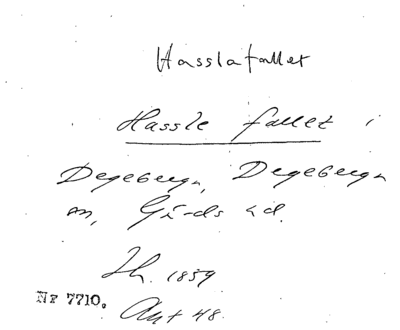 Hasslafallet
Hassle fallet i
Degeberga, Degeberga
sn, Gärds hd.
Jh. 1859
Nr 7710. Akt 48.